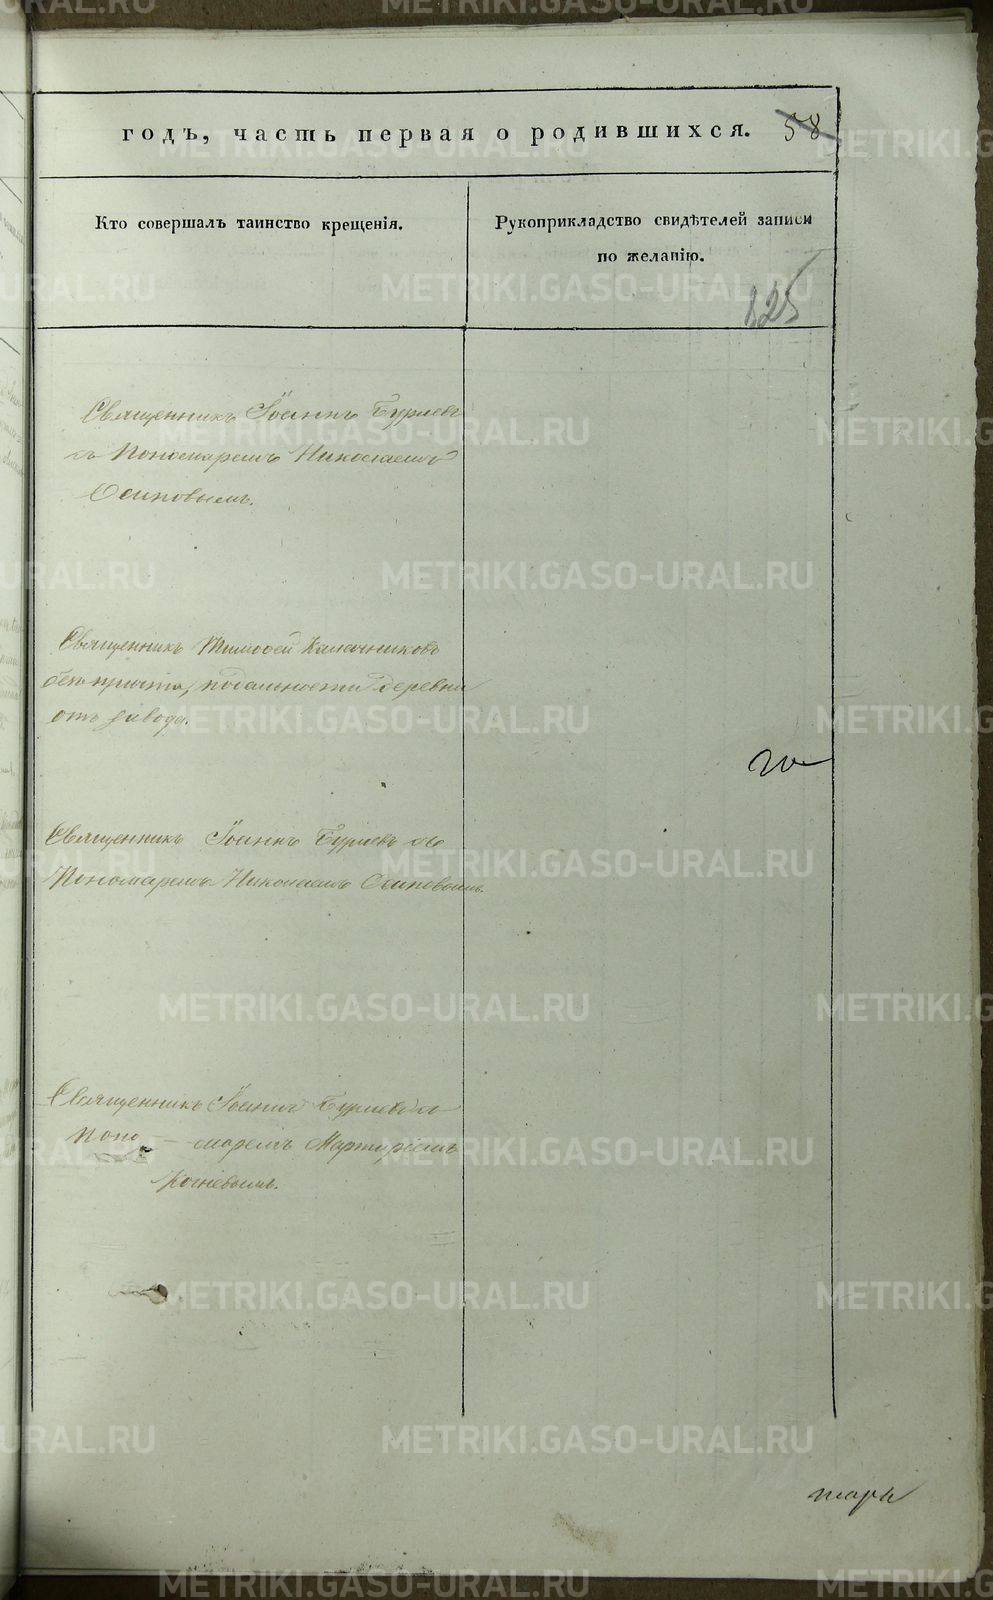 годъ, часть первая о родившихся. 58
Кто совершалъ таинство крещенія.
Рукоприкладство свидѣтелей записи
по желанію.
125
Священникъ Іоаннъ Бурлевъ
съ Пономаремъ Николаемъ
Осиповымъ.
Священникъ Тимоѳей Калачниковъ
безъ причта, подальности деревни
отъ завода.
Священникъ Іоаннъ Бурлевъ съ
Пономаремъ Николаемъ Осиповымъ.
Священникъ Іоаннъ Бурлевъ съ
Поно-маремъ Мартиріемъ
маръ
METRIKI.GASO-URAL.RU